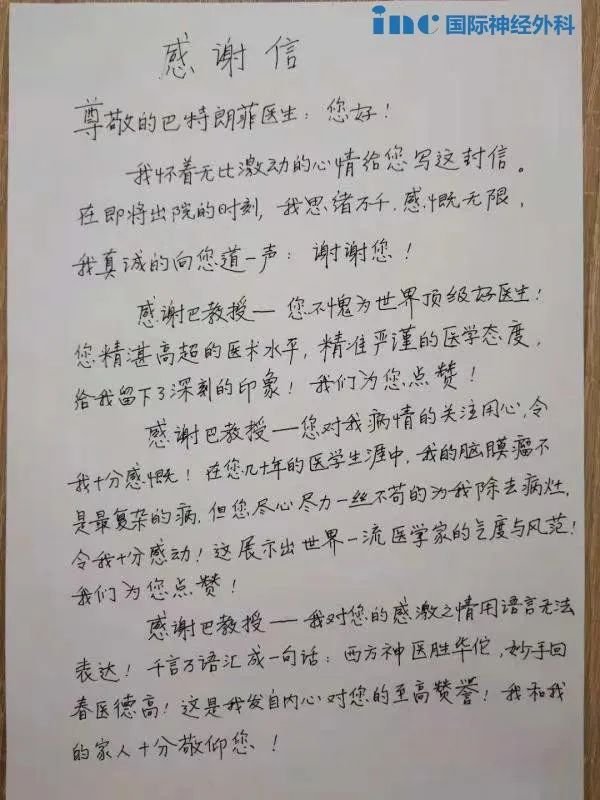 inc 国际神经外科
感谢信
尊敬的巴特朗菲医生：您好！
我怀着无比激动的心情给您写这封信。
在即将出院的时刻，我思绪万千，感慨无限，
我真诚的向您道一声：谢谢您！
感谢巴教授—您不愧为世界顶级好医生！
您精湛高超的医术水平，精准严谨的医学态度，
给我留下了深刻的印象！我们为您点赞！
感谢巴教授—您对我病情的关注用心，令
我十分感慨！在您几十年的医学生涯中，我的脑膜瘤不
是最复杂的病，但您尽心尽力一丝不苟的为我除去病灶，
令我十分感动！这展示出世界一流医学家的气度与风范！
我们为您点赞！
感谢巴教授—我对您的感激之情用语言无法
表达！千言万语汇成一句话：西方神医胜华佗，妙手回
春医德高！这是我发自内心对您的至高赞誉！我和我
的家人十分敬仰您！